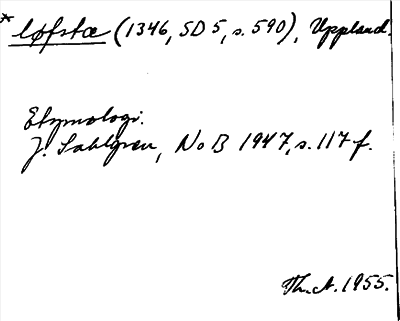 * løfstæ (1346, SD 5, s. 590), Uppland.
Etymologi.
J. Sahlgren, NoB 1947, s. 117 f.
Th. A. 1955.